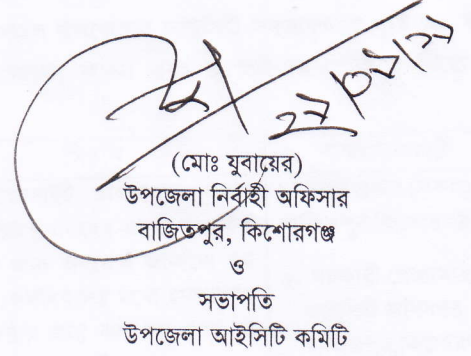 (মোঃ যুবায়ের)
উপজেলা নির্বাহী অফিসার
বাজিতপুর, কিশোরগঞ্জ
ও
সভাপতি
উপজেলা আইসিটি কমিটি